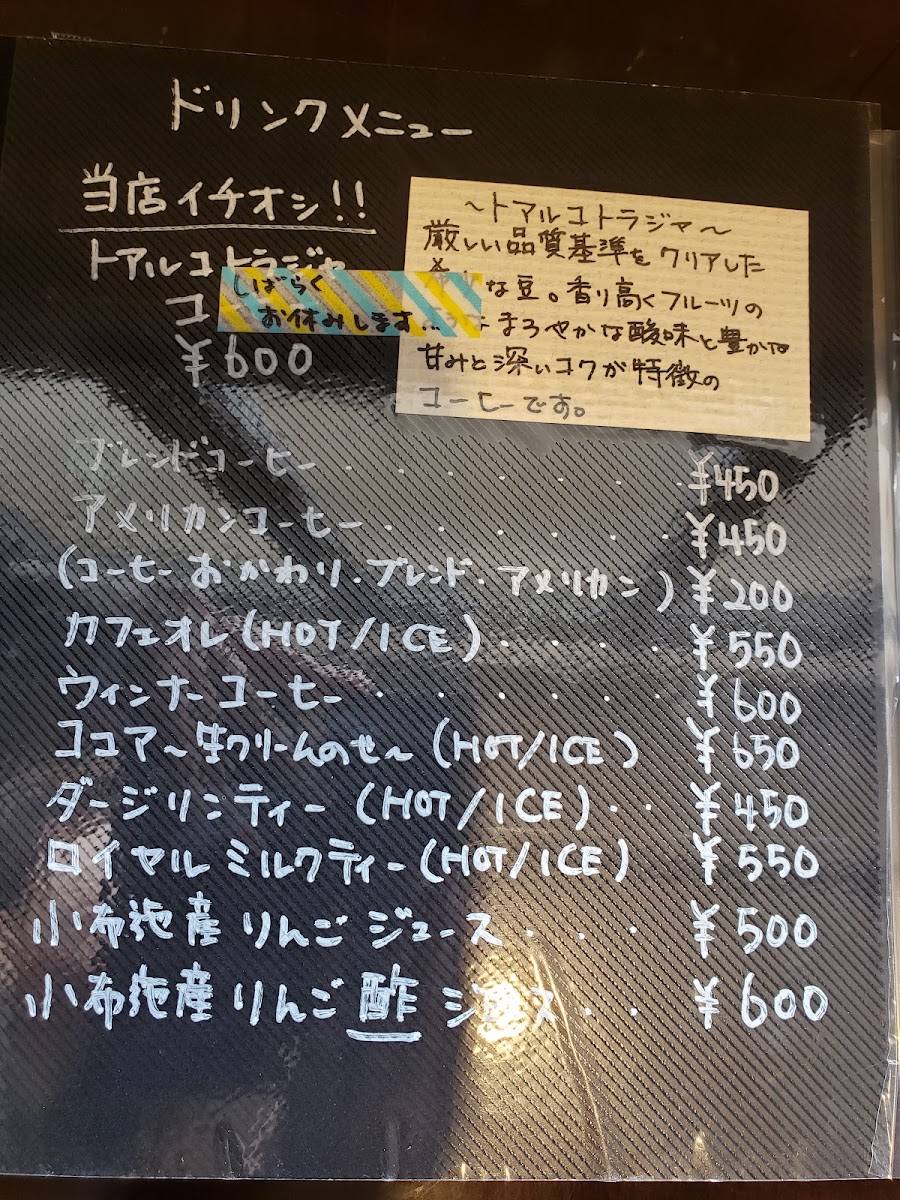 ドリンクメニュー
当店イチオシ!!
トアルコトラジャ
コ
¥600
しばらく
お休みします...
～トアルコトラジャ～
厳しい品質基準をクリアした
な豆。香り高くフルーツの
まろやかな酸味と豊かな
甘みと深いコクが特徴の
コーヒーです。
ブレンドコーヒー・・・・・・¥450
アメリカンコーヒー・・・・・・¥450
(コーヒーおかわり・ブレンド・アメリカン)¥200
カフェオレ(HOT/ICE)・・・・¥550
ウィンナーコーヒー・・・・・・¥600
ココア～生クリームのせ～(HOT/ICE)¥650
ダージリンティー(HOT/ICE)・・¥450
ロイヤルミルクティー(HOT/ICE)¥550
小布施産りんごジュース・・・・¥500
小布施産りんご酢ジュース・・¥600